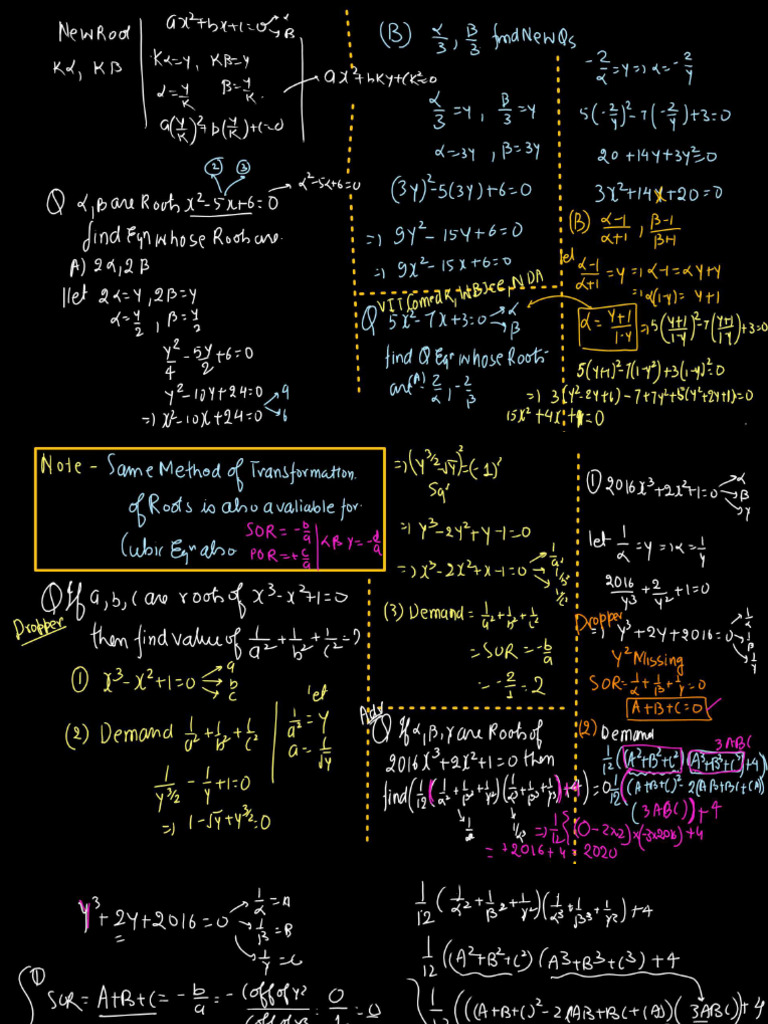 New Root
Kα, Kβ
ax²+bx+c=0 → α
→ β
Kα=y, Kβ=y
α=y/K β=y/K
a(y/K)²+b(y/K)+c=0
ax²+bKy+CK²=0
② ③
Q α,β are Roots x²-5x+6=0
α²-5α+6=0
find Eqn whose Roots are
A) 2α, 2β
let 2α=y, 2β=y
α=y/2, β=y/2
y²/4 - 5y/2 +6=0
y²-10y+24=0 → 4
⇒ x²-10x+24=0 → 6
(B) α/3, β/3 find New Qs
α/3=y, β/3=y
α=3y, β=3y
(3y)²-5(3y)+6=0
⇒ 9y²-15y+6=0
⇒ 9x²-15x+6=0
NDA
Q 5x²-7x+3=0 → α
→ β
find Q Eqn whose Roots
are (A) -2/α, -2/β
-2/α=y ⇒ α=-2/y
5(-2/y)²-7(-2/y)+3=0
20+14y+3y²=0
3x²+14x+20=0
(B) α-1/α+1, β-1/β+1
let α-1/α+1=y ⇒ α-1=αy+y
⇒ α(1-y)=y+1
α=y+1/1-y ⇒ 5(y+1/1-y)²-7(y+1/1-y)+3=0
5(y+1)²-7(1-y²)+3(1-y)²=0
⇒ 3(y²-2y+1)-7+7y²+5(y²+2y+1)=0
15x²+4x+1=0
Note - Same Method of Transformation
of Roots is also avaliable for
Cubic Eqn also
SOR=-b/a
POR=+c/a
αβγ=-d/a
Q If a,b,c are roots of x³-x²+1=0
Dropper
then find value of 1/a²+1/b²+1/c²=?
① x³-x²+1=0 → a
→ b
→ c
(2) Demand 1/a²+1/b²+1/c²
let
1/a²=y
a=1/√y
1/y^3/2 - 1/y +1=0
⇒ 1-√y+y^3/2=0
⇒ (y^3/2-√y)²=(-1)²
Sqr
⇒ y³-2y²+y-1=0
⇒ x³-2x²+x-1=0 → 1/a²
→ 1/b²
→ 1/c²
(3) Demand=1/a²+1/b²+1/c²
=SOR=-b/a
=--2/1=2
Adv
Q If α,β,γ are Roots of
2016x³+2x²+1=0 then
find (1/12(1/α²+1/β²+1/γ²)(1/α³+1/β³+1/γ³)+4)
① 2016x³+2x²+1=0 → α
→ β
→ γ
let 1/α=y ⇒ α=1/y
2016/y³+2/y²+1=0
Dropper
⇒ y³+2y+2016=0 → 1/α
→ 1/β
→ 1/γ
y² Missing
SOR=1/α+1/β+1/γ=0
A+B+C=0
(2) Demand
3ABC
1/12((A²+B²+C²)(A³+B³+C³)+4)
=1/12((A+B+C)²-2(AB+BC+CA)
(3ABC))+4
⇒ 1/12{(0-2×2)×(-3×2016)+4
=+2016+4=2020
y³+2y+2016=0 → 1/α=A
→ 1/β=B
→ 1/γ=C
① SOR=A+B+C=-b/a=-(coff of y²/coff of y³=0/1=0
1/12(1/α²+1/β²+1/γ²)(1/α³+1/β³+1/γ³)+4
1/12((A²+B²+C²)(A³+B³+C³)+4
1/12(((A+B+C)²-2(AB+BC+CA)(3ABC))+4